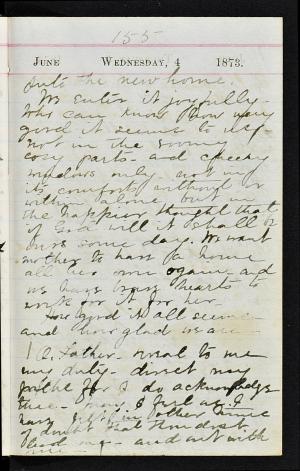 155
JUNE WEDNESDAY, 4 1873.
into the new home.
We enter it joyfully.
Who can know how very
good it seems to us,
not in the roomy
cosy parts and cheery
windows only - not in
its comforts without or
within alone, but in
the happier thought that
if God will it shall be
ours some day. We want
mother to have a home
all her own again and
we have brave hearts to
work for it for her.
How good it all seems
and how glad we are
O, Father. reveal to me
my duty - direct my
paths for I do acknowledge
thee. feel as I
have felt in other times
of doubt that thou dost
lead me - and out with